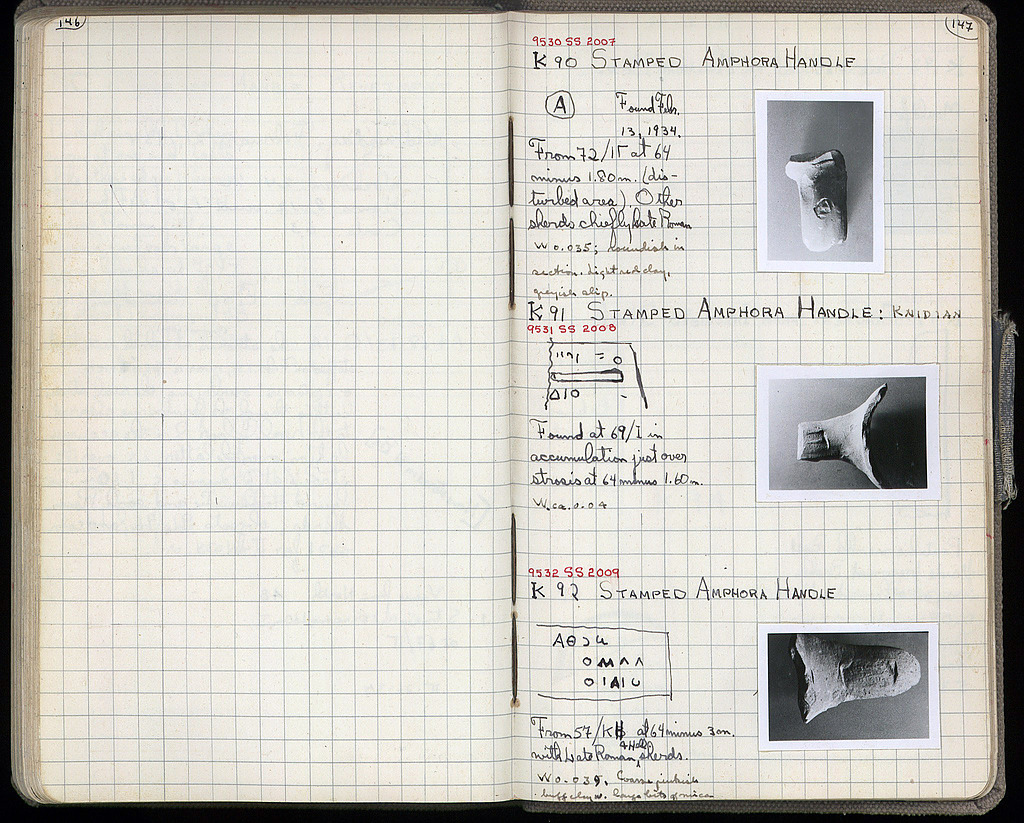 146
147
9530 SS 2007
K 90 STAMPED AMPHORA HANDLE
A Found Feb.
13, 1934.
From 72/ΙΓ at 64
minus 1.80 m. (dis-
turbed area). Other
sherds chiefly Late Roman
W 0.035; roundish in
section. Light red clay,
greyish slip.
K 91 STAMPED AMPHORA HANDLE: KNIDIAN
9531 SS 2008
ΔΙΟ
Found at 69/I in
accumulation just over
strosis at 64 minus 1.60 m.
W. ca. 0.04
9532 SS 2009
K 92 STAMPED AMPHORA HANDLE
ΑΘ
From 57/K at 64 minus 3 m.
with Late Roman & Hell. sherds.
W 0.039. Coarse pinkish
buff clay w. large bits of mica